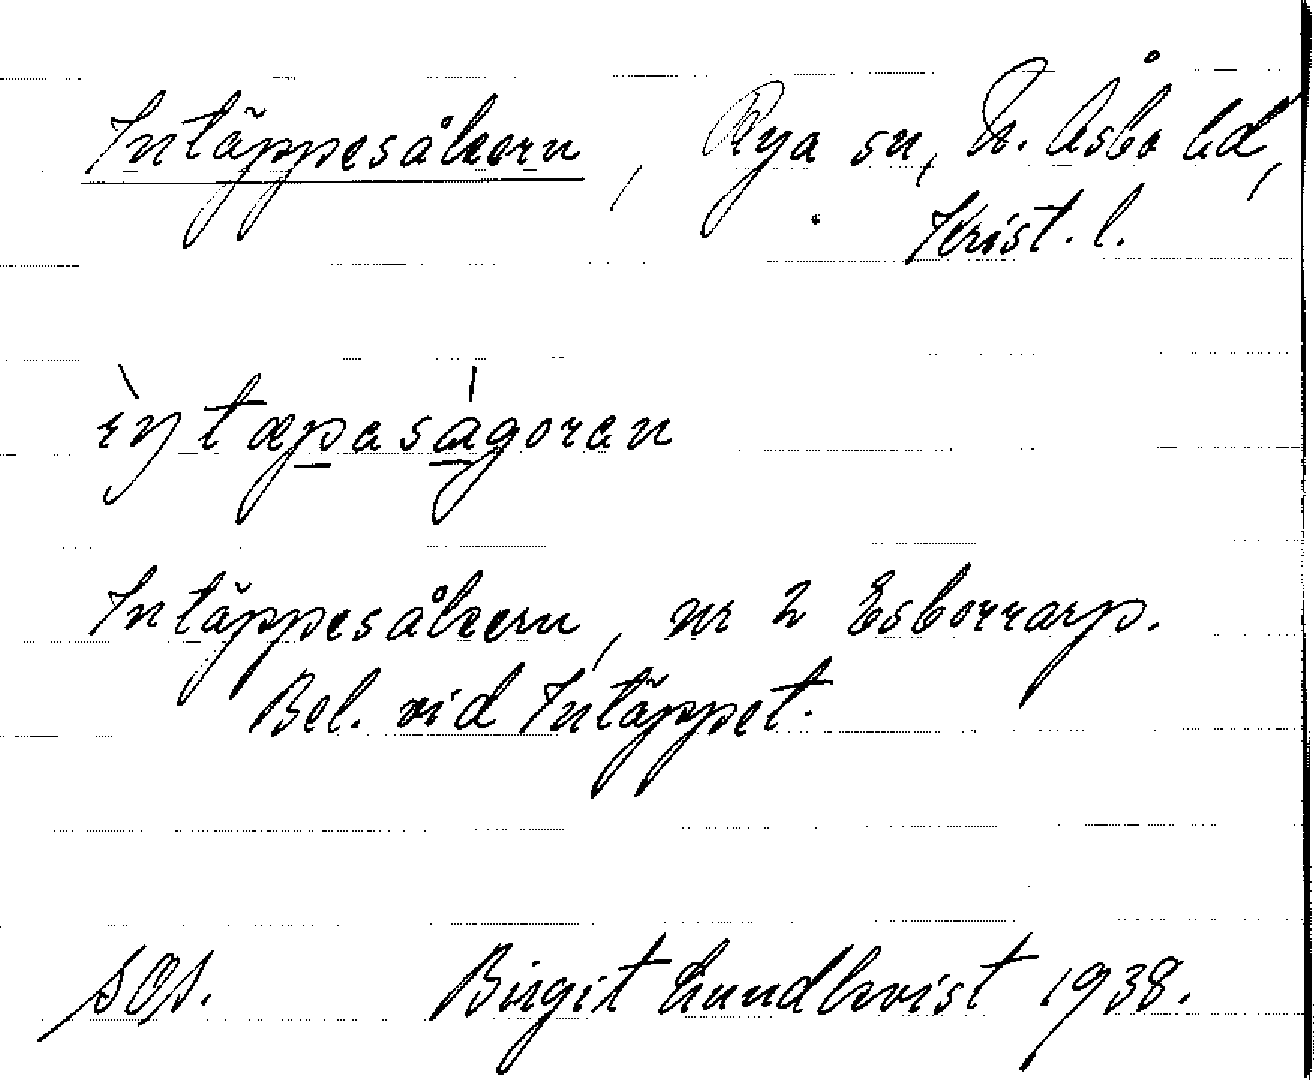 Intäppesåkern, Rya sn, N. Åsbo hd,
Krist. l.
Intäppesåkern, nr 2 Esborrarp.
Bel. vid Intäppet.
SOS. Birgit Lundkvist 1938.